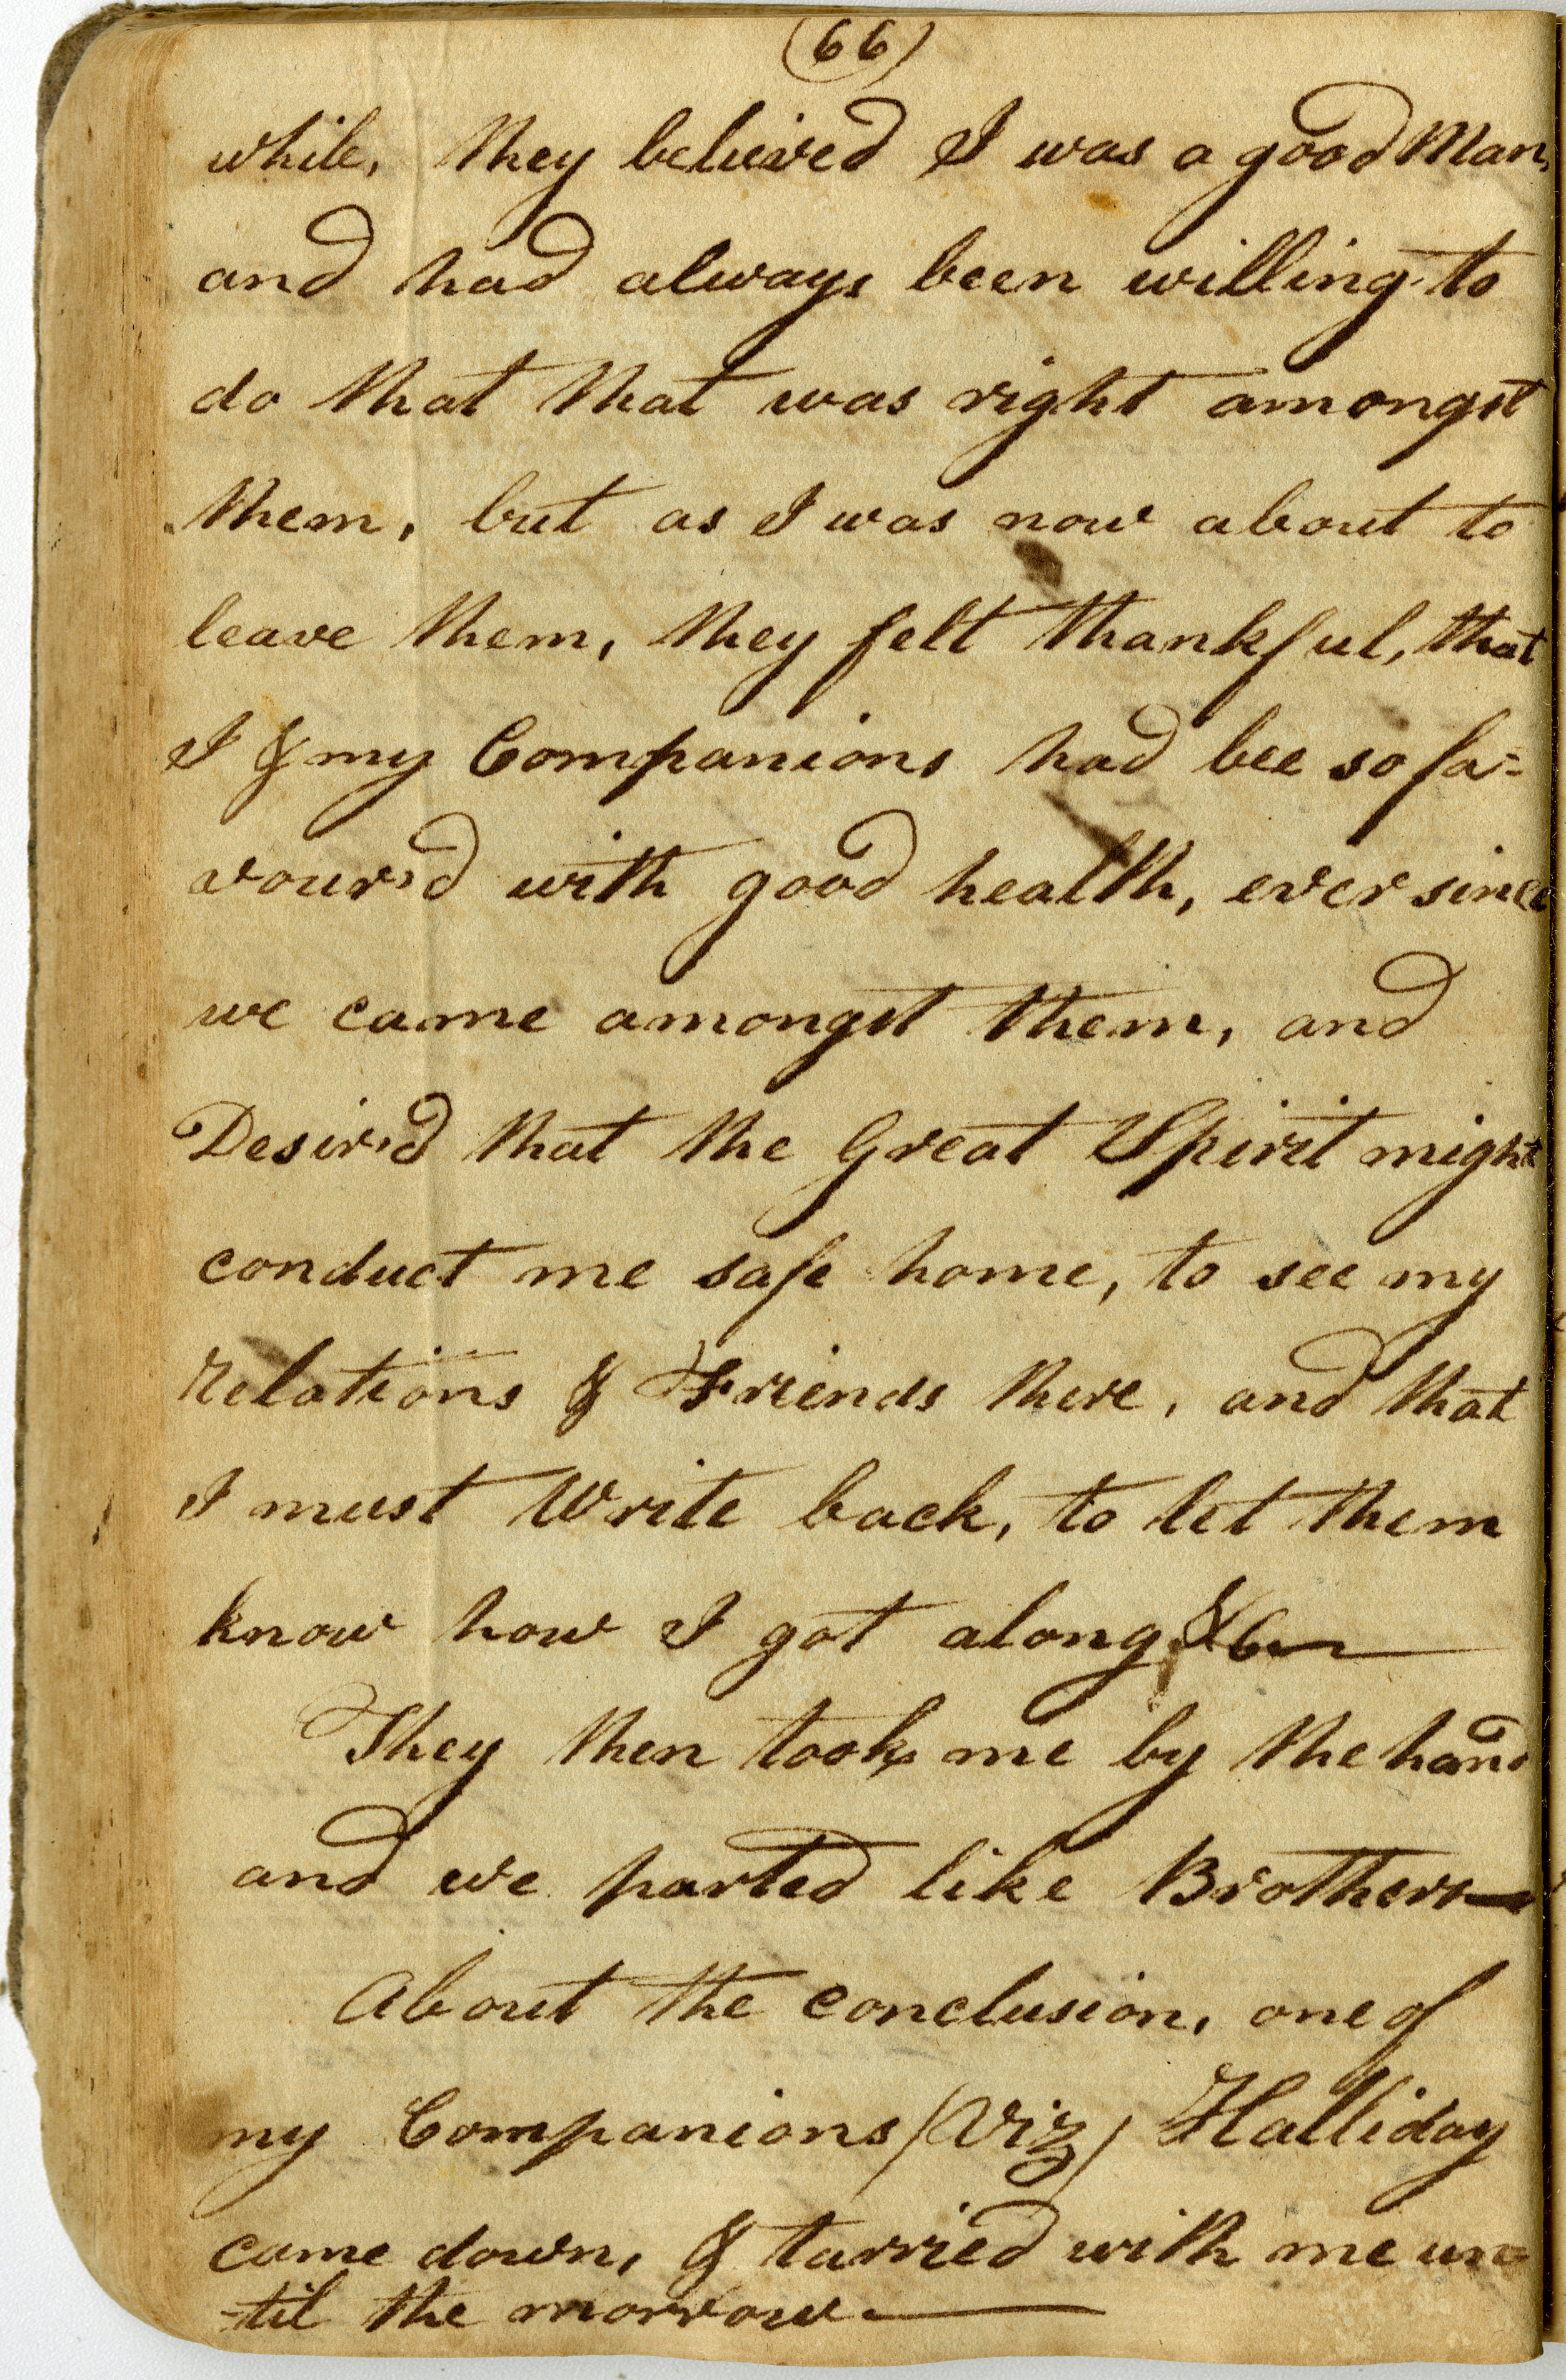 (66)
while, they believed I was a good Man,
and had always been willing to
do that that was right amongst
them, but as I was now about to
leave them, they felt thankful, that
I & my Companions had bee so fa=
vour'd with good health, ever since
we came amongst them, and
Desir'd that the Great Spirit might
conduct me safe home, to see my
Relations & Friends there, and that
I must Write back, to let them
know how I got along &c—
They then took me by the hand
and we parted like Brothers—
About the conclusion, one of
my Companions (Viz) Halliday
came down, & tarried with me un=
-til the morrow.—